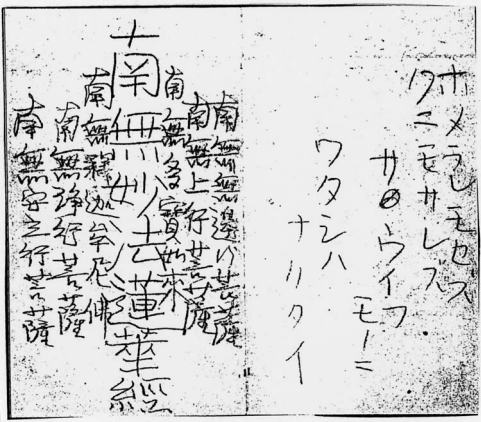 ホメラレモセズ
クニモサレズ
サウイフ
モノニ
ワタシハ
ナリタイ
南無無邊行菩薩
南無上行菩薩
南無多寳如来
南無妙法蓮華經
南無釋迦牟尼佛
南無淨行菩薩
南無安立行菩薩